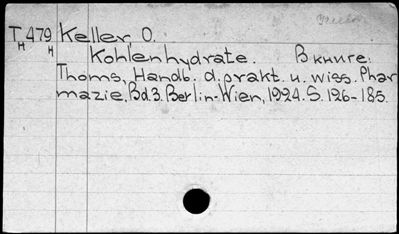 T 479 Keller O.
H H
Kohlenhydrate. В книге:
Thoms, Handb. d. prakt. u. wiss. Phar
mazie, Bd 3. Berlin-Wien, 1924. S. 126-185.